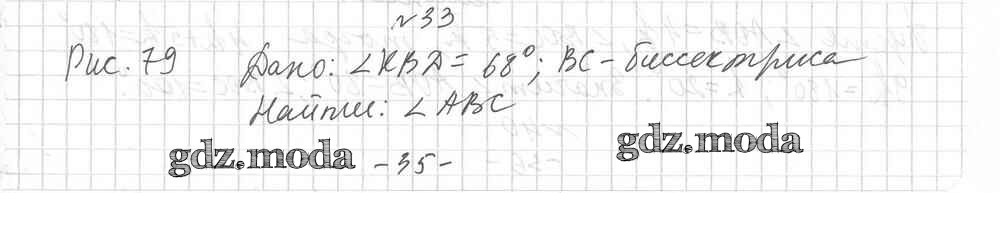 №33
Рис. 79 Дано: ∠KBD = 68°; BC - биссектриса
Найти: ∠ABC
gdz.moda -35- gdz.moda